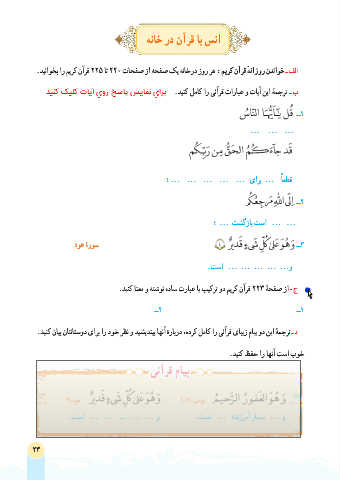 انس با قرآن در خانه
الف ـ خواندن روزانهٔ قرآن کریم : هر روز در خانه یک صفحه از صفحات ۲۲۰ تا ۲۲۵ قرآن کریم را بخوانید.
ب ـ ترجمهٔ این آیات و عبارات قرآنی را کامل کنید. برای نمایش پاسخ روی آیات کلیک کنید
۱ـ قُل يٰٓأَيُّهَا النّاسُ
... ... ...
قَد جآءَكُمُ الحَقُّ مِن رَبِّكُم
قطعاً ... برای ... ... ... ... ... :
۲ـ اِلَى اللّٰهِ مَرجِعُكُم
... ... است بازگشت ... :
۳ـ وَ هُوَ عَلىٰ كُلِّ شَیءٍ قَديرٌ سورهٔ هود
و ... ... ... ... ... است.
ج ـ از صفحهٔ ۲۲۳ قرآن کریم دو ترکیب یا عبارت ساده نوشته و معنا کنید.
۱ـ ۲ـ
د ـ ترجمهٔ این دو پیام زیبای قرآنی را کامل کرده، دربارهٔ آنها بیندیشید و نظر خود را برای دوستانتان بیان کنید.
خوب است آنها را حفظ کنید.
پیام قرآنی
وَ هُوَ الغَفورُ الرَّحيمُ وَ هُوَ عَلىٰ كُلِّ شَیءٍ قَديرٌ
و ... بسیار آمرزنده ... است. و ... ... ... ... است.
۳۳